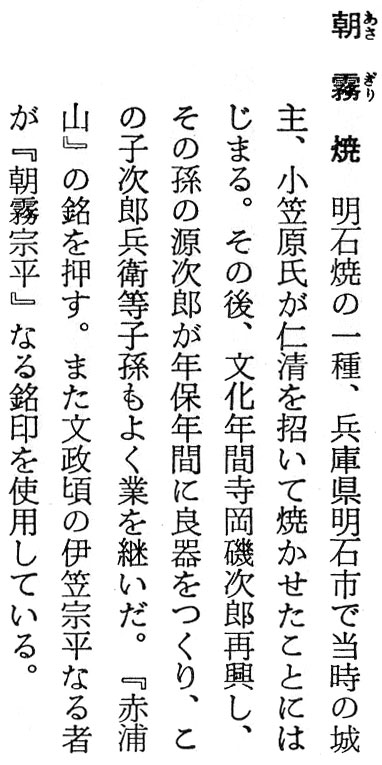 朝霧焼　明石焼の一種、兵庫県明石市で当時の城
主、小笠原氏が仁清を招いて焼かせたことには
じまる。その後、文化年間寺岡磯次郎再興し、
その孫の源次郎が年保年間に良器をつくり、こ
の子次郎兵衛等子孫もよく業を継いだ。『赤浦
山』の銘を押す。また文政頃の伊笠宗平なる者
が『朝霧宗平』なる銘印を使用している。
あさ
ぎり